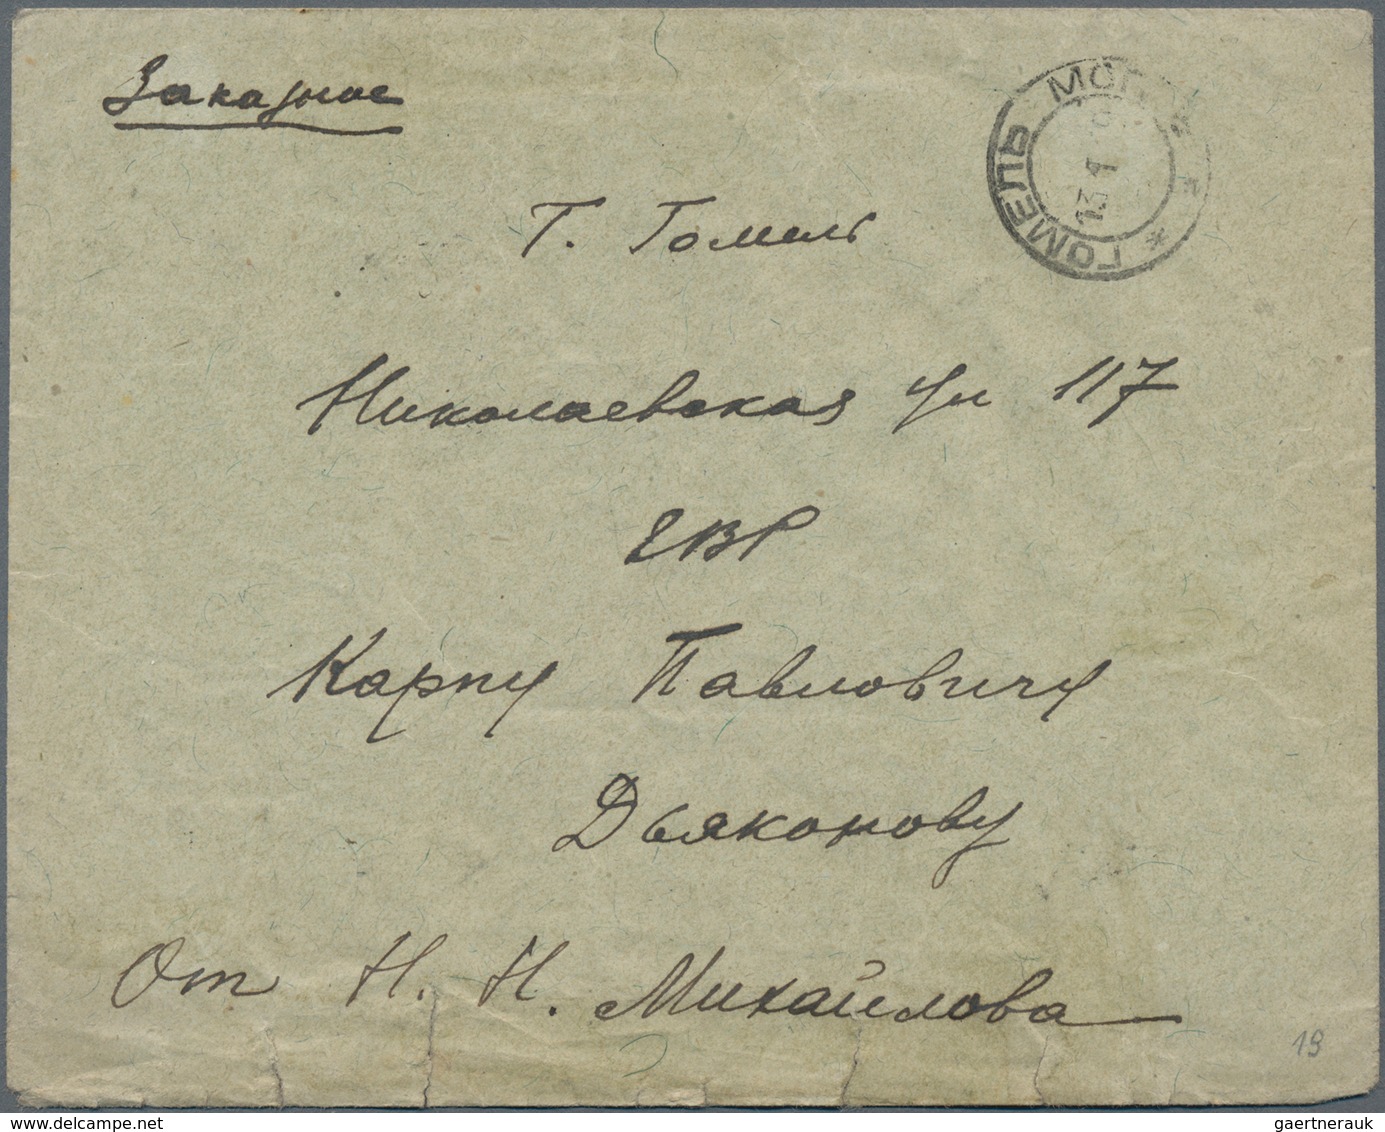 Заказное
ГОМЕЛЬ МОГ
13 1
Г. Гомель
Николаевская ул 117
ЕВР
Карпу Павловичу
Дьяконову
От Н. Н. Михайлова
19
gaertnerauk